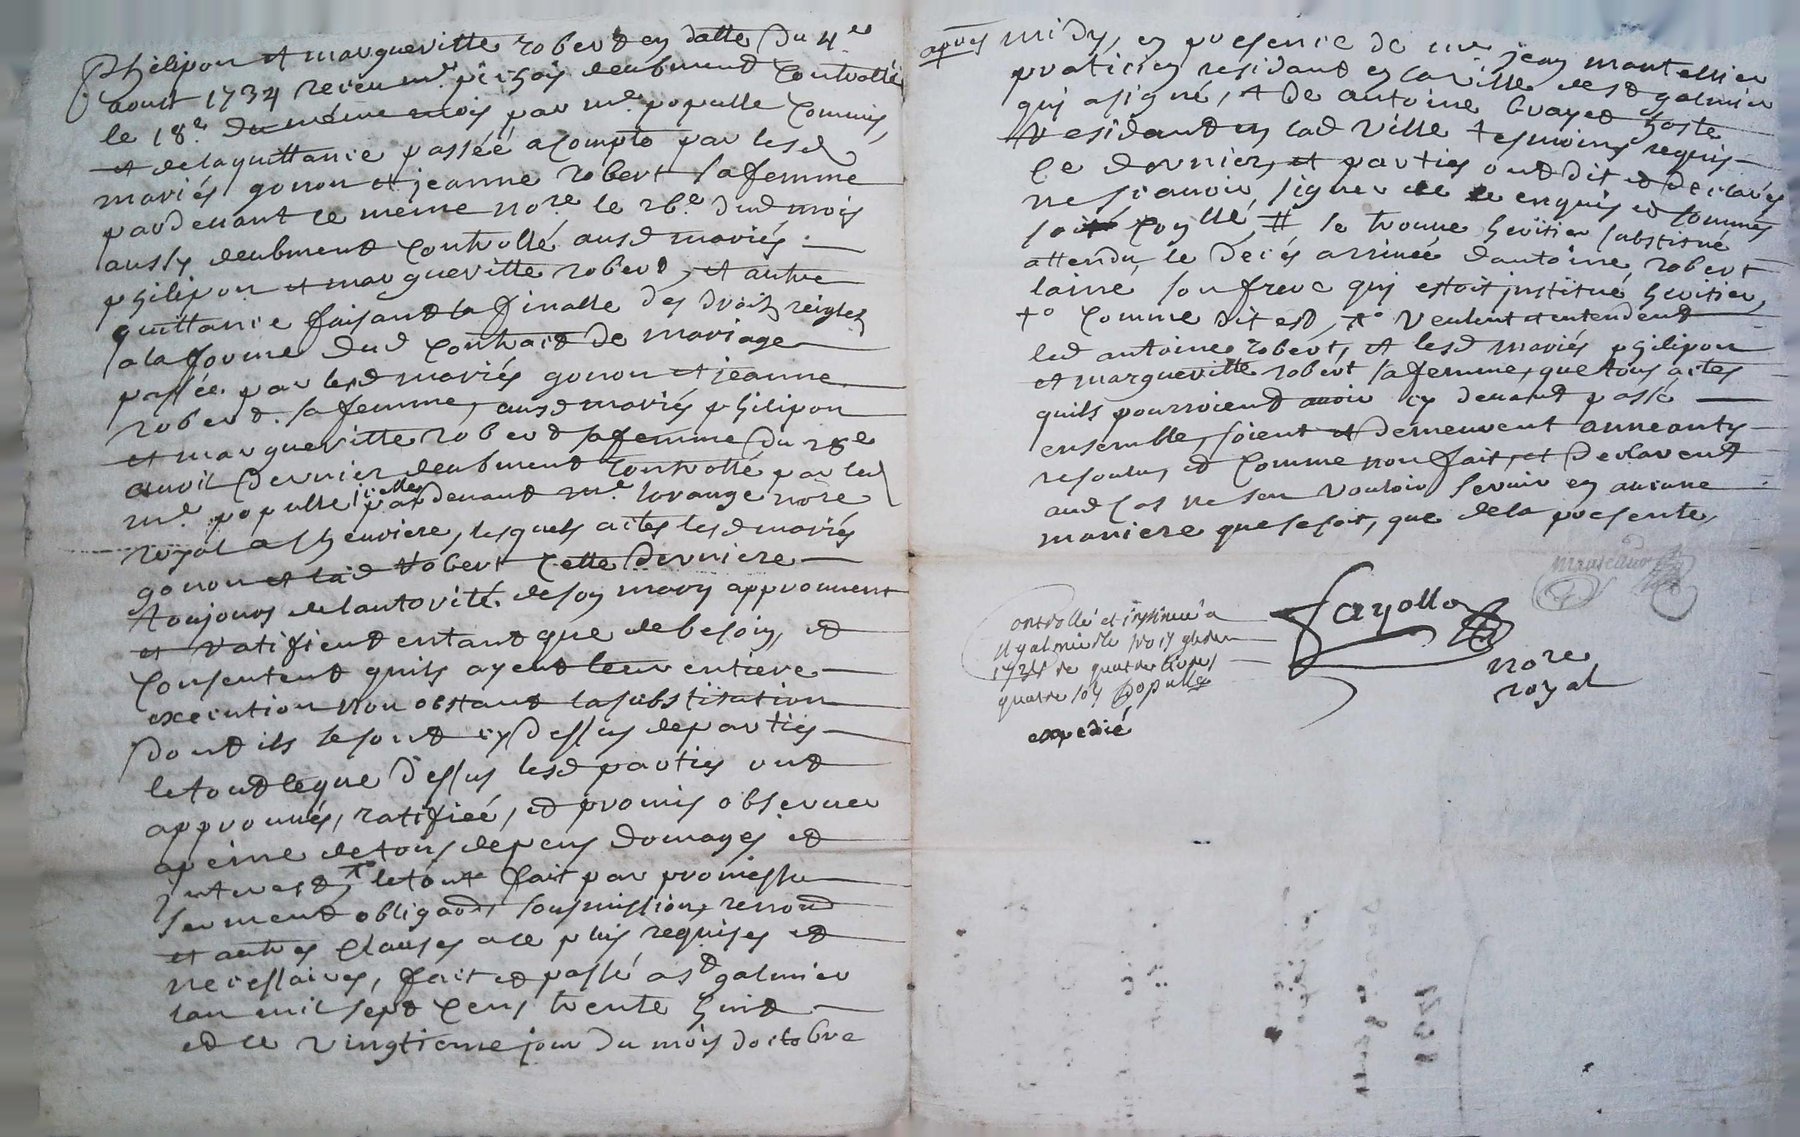 philipon et margueritte robert en datte du 4e
aoust 1734 receu me pichois deubment controllé
le 18e du même mois par me populle commis,
et de la quittance passéé a compte par lesd
mariés gonon et jeanne robert sa femme
pardevant le meme nore le 26e dud mois
aussy deubment controllé ausd mariés
philipon et margueritte robert, et autre
quittance faisant la finalle des droits reigles
a la forme dud contract de mariage
passée par lesd mariés gonon et jeanne
robert sa femme, ausd mariés philipon
et margueritte robert sa femme du 28e
avril dernier deubment controllé par led
me populle icelle pardevant me lorange nore
royal a chevriere, lesquels actes lesd mariés
gonon et lad robert cette derniere
toujours de lautorité de son mary approuvent
et ratifient entant que de besoin, et
consentent quils ayent leur entiere
execution non obstant la substitution
dont ils se sont cy dessus departies
le tout leque dessus lesd parties ont
approuvés, ratifiéé, et promis observer
a peine de tous depens domages et
interest, +o le tout fait par promesse
serment obligaons, sousmissions, renond
et autres clauses a ce plus requises et
necessaires, fait et passé a st galmier
lan mil sept cens trente huit
et ce vingtieme jour du mois doctobre
apres midy, en presence de me jean mantellier
praticien residant en la ville de st galmier
qui a signé, et de antoine buayed hoste
residant en lad ville tesmoins requis
ce dernier, et parties ont dit et declarés
ne scavoir signer de ce enquis et sommés
soit coyllé, # se trouve heritier substitué
attendu le décés arrivéé dantoine robert
lainé son frere qui estoit institué heritier,
+o comme dit est, +o veulent et entendent
led antoine robert, et lesd mariés philipon
et margueritte robert sa femme, que tous actes
quils pourroient avoir cy devant passé
ensemble, soient et demeurent anneanty
resoulus, et comme non fait, et declarent
aud cas ne sen vouloir servir en aucune
maniere que ce soit, que de la presente,
fayolle
nore
royal
controllé et insinué a
st galmier le
quatre livres
quatre sols populle
expedié
1738